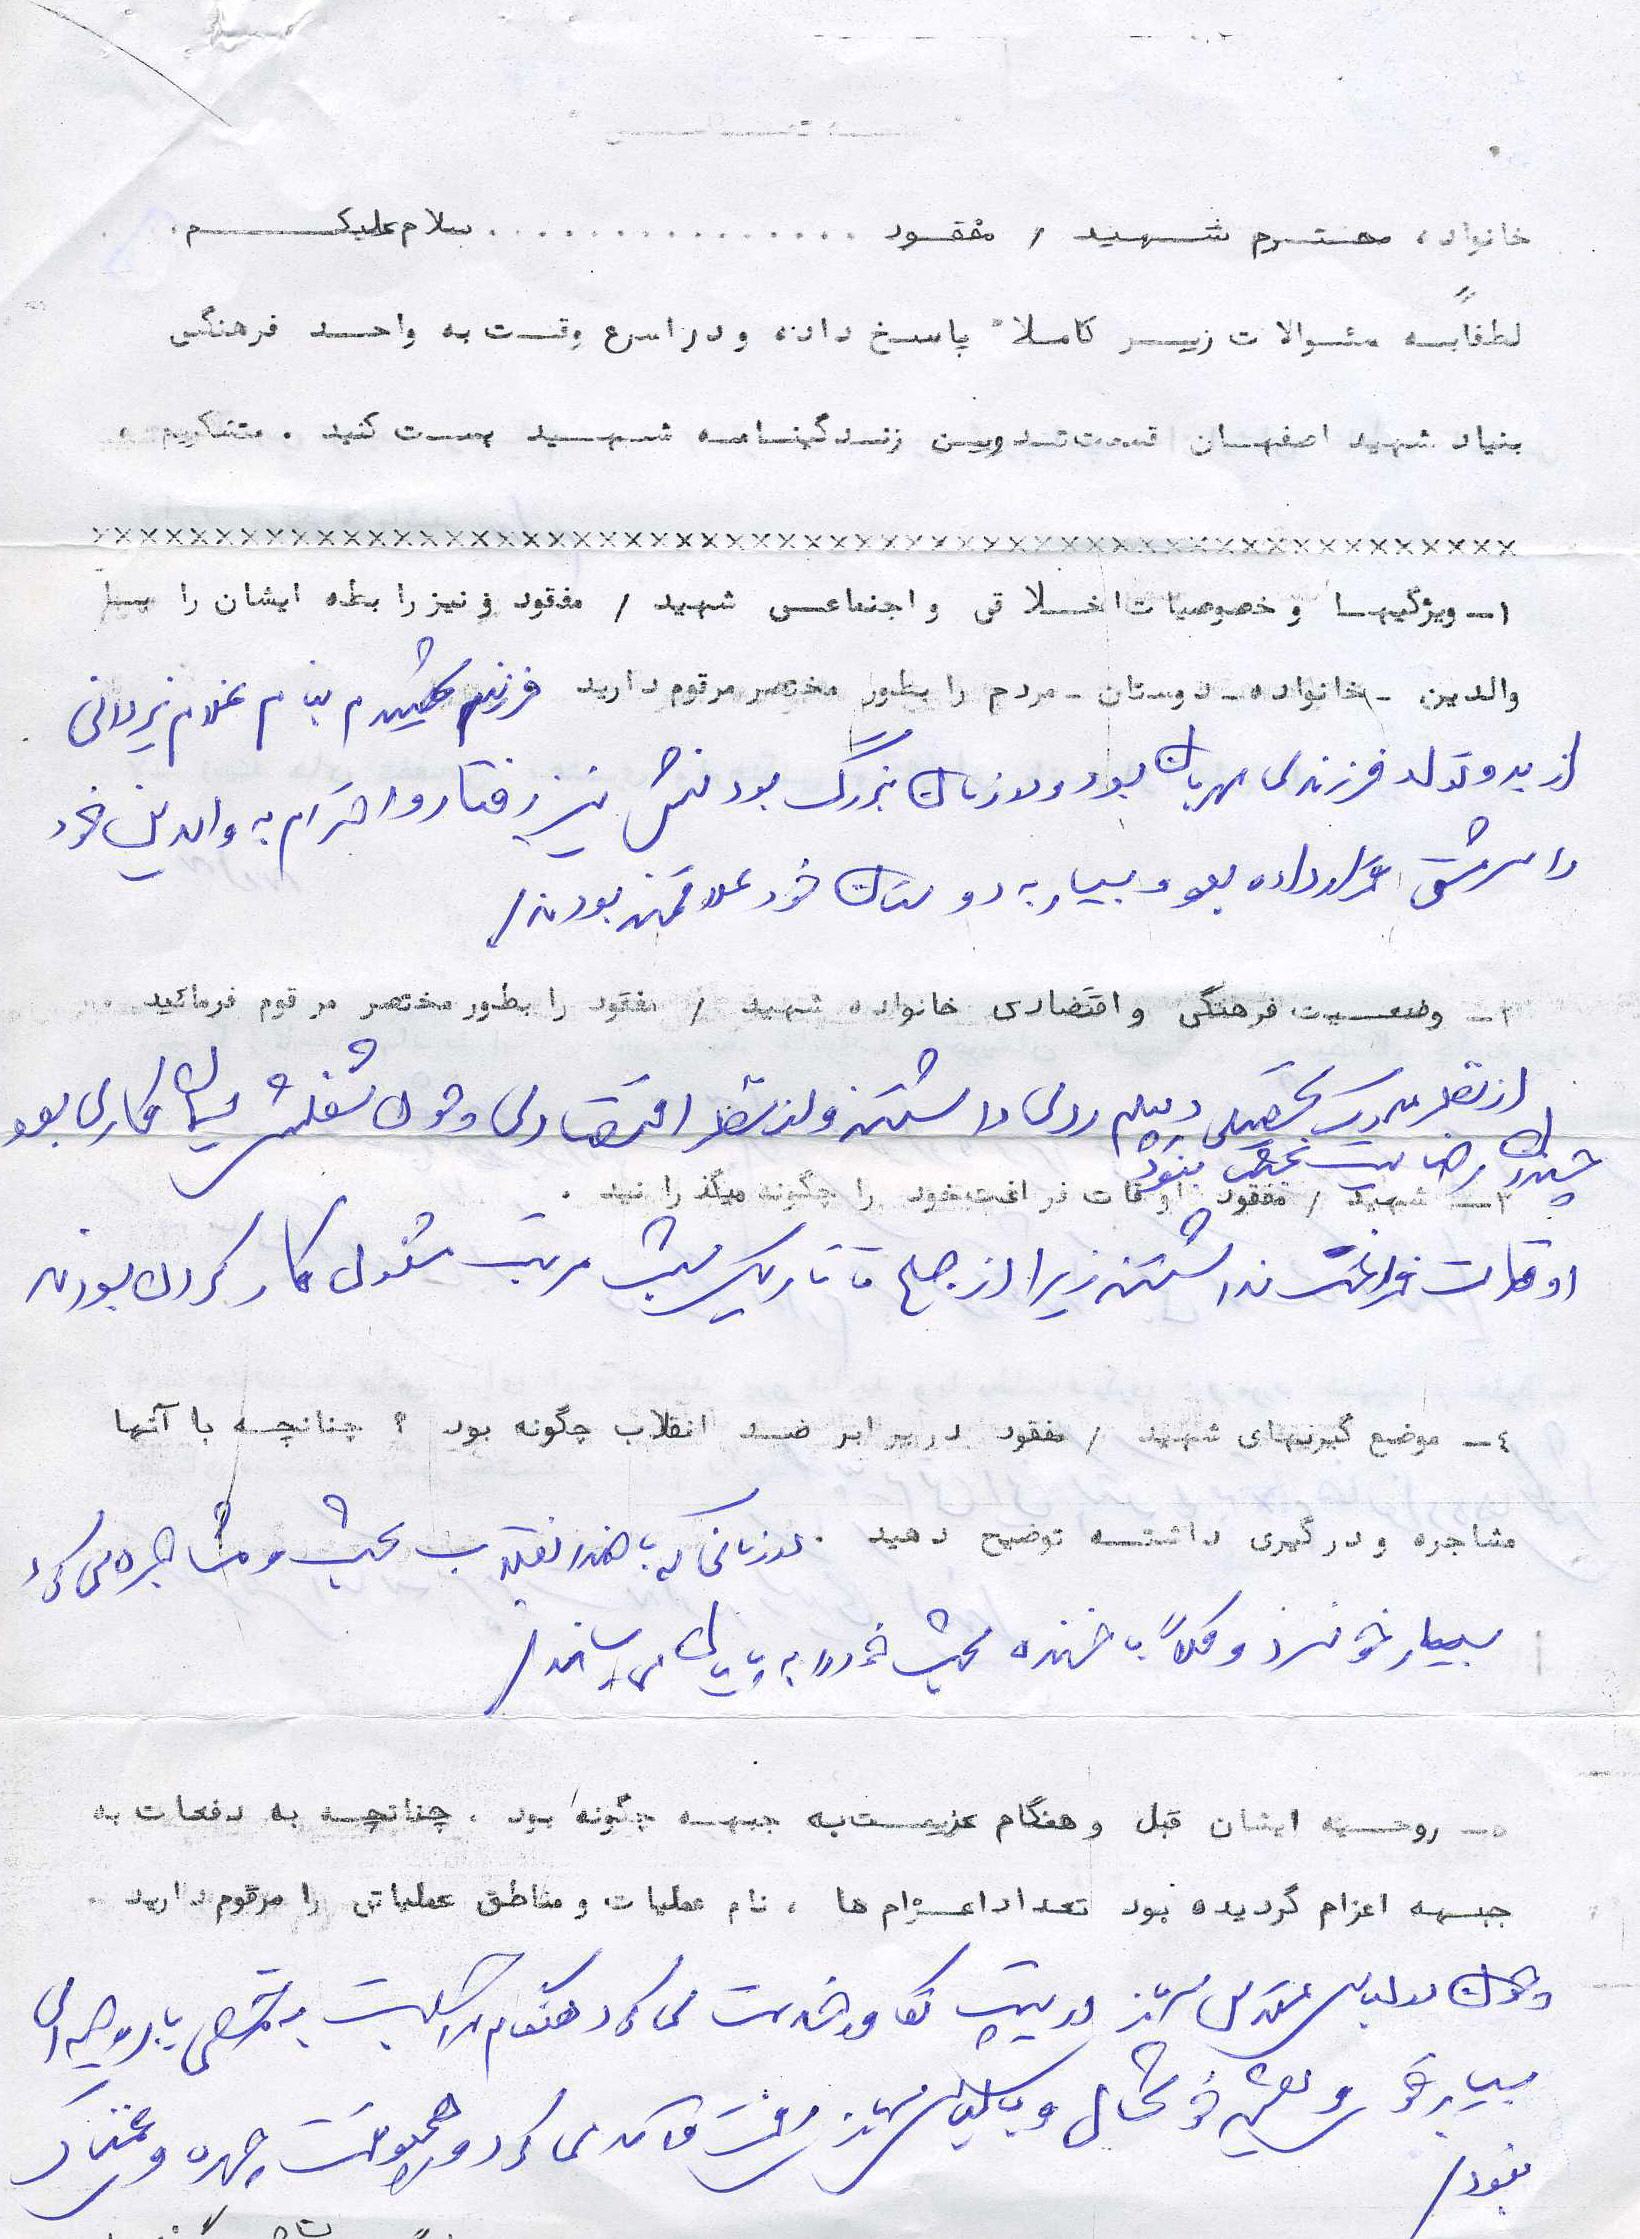 خانواده محترم شهید / مفقود ................ سلام علیکم
لطفا به سئوالات زیر کاملاً پاسخ داده و در اسرع وقت به واحد فرهنگی
بنیاد شهید اصفهان قسمت تدوین زندگینامه شهید پست کنید . متشکریم
××××××××××××××××××××××××××××××××××××××××××××××××××××××××
۱ـ ویژگیها و خصوصیات اخلاقی و اجتماعی شهید / مفقود و نیز رابطه ایشان را با
والدین ـ خانواده ـ دوستان ـ مردم را بطور مختصر مرقوم دارید فرزند شهیدم بنام غلام
از بدو تولد فرزندی مهربان بود و در زمان بزرگ بودنش نیز رفتار و احترام به والدین خود
را سرمشق قرار داده بود و بسیار به دوستان خود علاقمند بودند/
۲ـ وضعیت فرهنگی و اقتصادی خانواده شهید / مفقود را بطور مختصر مرقوم فرمائید .
از نظر مدرک تحصیلی دیپلم ردی داشتند و از نظر اقتصادی و چون شغلش کاری بود
چندان رضایت بخش نبود
۳ـ شهید / مفقود اوقات فراغت خود را چگونه میگذرانید .
اوقات فراغت نداشتند زیرا از صبح تا تاریک شب مرتب مشغول کار کردن بودند
٤ـ موضع گیریهای شهید / مفقود در برابر ضد انقلاب چگونه بود ؟ چنانچه با آنها
مشاجره و درگیری داشته توضیح دهید . در زمانی که با ضد انقلاب بحث و مشاجره می کرد
بسیار خونسرد و کلاً با خنده بحث خود را به پایان می رساند/
٥ـ روحیه ایشان قبل و هنگام عزیمت به جبهه چگونه بود . چنانچه به دفعات به
جبهه اعزام گردیده بود تعداد اعزام ها ، نام عملیات و مناطق عملیاتی را مرقوم دارید .
و چون در لباس مقدس سربازی در خدمت می کرد هنگام به مرخصی با روحیه ای
بسیار خوش و همیشه خوشحال و با لباس سربازی رفت و آمد می کرد و هیچوقت چهره غمناک
نبود/